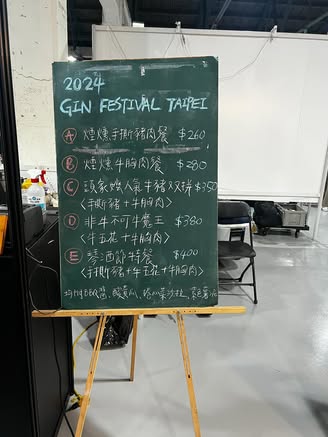 2024
GIN FESTIVAL TAIPEI
A 煙燻手撕豬肉餐 $260
B 煙燻牛胸肉餐 $280
C 頭家嚴人氣牛豬双拼 $350
〈手撕豬+牛胸肉〉
D 非牛不可牛魔王 $380
〈牛五花+牛胸肉〉
E 琴酒節特餐 $400
〈手撕豬+牛五花+牛胸肉〉
均附BBQ醬、酸黃瓜、捲心菜沙拉、